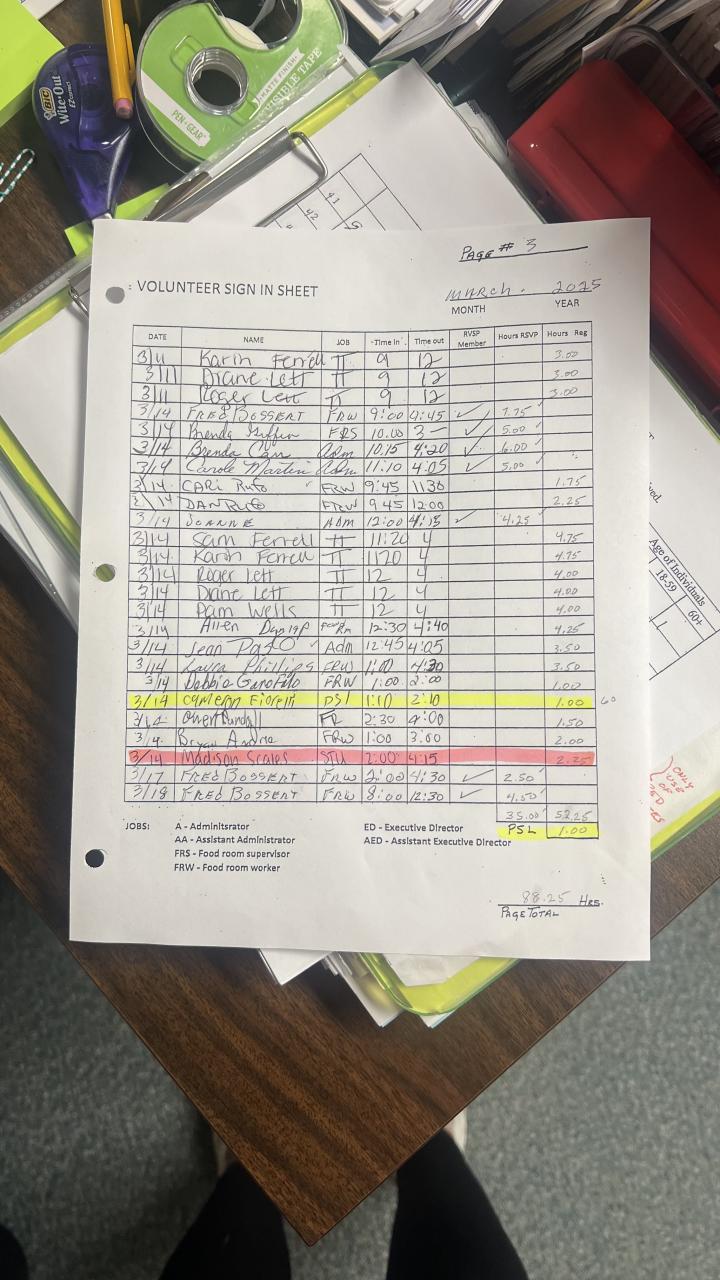 BIC
Wite·Out
EZ correct
MATTE FINISH
INVISIBLE TAPE
PEN+GEAR
41
42
PAGE # 3
: VOLUNTEER SIGN IN SHEET
MARCH. 2025
MONTH YEAR
DATE NAME JOB Time in Time out RVSP Member Hours RSVP Hours Reg
3/11 Karin Ferrell TT 9 12 3.00
3/11 Diane Lett TT 9 12 3.00
3/11 Roger Lett TT 9 12 3.00
3/14 FRED BOSSERT FRW 9:00 4:45 ✓ 7.75
3/14 Brenda FRS 10:00 3 – ✓ 5.00
3/14 Brenda Adm 10:15 4:20 ✓ 6.00
3/14 Carole Martin Adm 11:10 4:05 ✓ 5.00
3/14 CARi Rufo FRW 9:45 1130 1.75
3/14 DAN RUFO FRW 9 45 12:00 2.25
3/14 JOANNE ADM 12:00 4:15 ✓ 4.25
3/14 Sam Ferrell TT 11:20 4 4.75
3/14 Karin Ferrell TT 1120 4 4.75
3/14 Roger Lett TT 12 4 4.00
3/14 Diane Lett TT 12 4 4.00
3/14 Pam Wells TT 12 4 4.00
3/14 Allen Dunlap 12:30 4:40 4.25
3/14 Jean Adm 12:45 4:05 3.50
3/14 Laura Phillips FRW 1:00 4:30 3.50
3/14 Debbie Garofalo FRW 1:00 2:00 1.00
3/14 Cameron PSL 1:10 2:10 1.00 60
3/14 FR 2:30 4:00 1.50
3/14 Bryan Andre FRW 1:00 3:00 2.00
3/14 Madison Scales STU 2:00 4:15 2.25
3/17 FRED BOSSERT FRW 2:00 4:30 ✓ 2.50
3/18 FRED BOSSERT FRW 8:00 12:30 ✓ 4.50
35.00 52.25
PSL 1.00
JOBS: A - Adminitsrator ED - Executive Director
AA - Assistant Administrator AED - Assistant Executive Director
FRS - Food room supervisor
FRW - Food room worker
88.25 HRS.
PAGE TOTAL
Age of Individuals
18-59 60+
ONLY
USE
OF